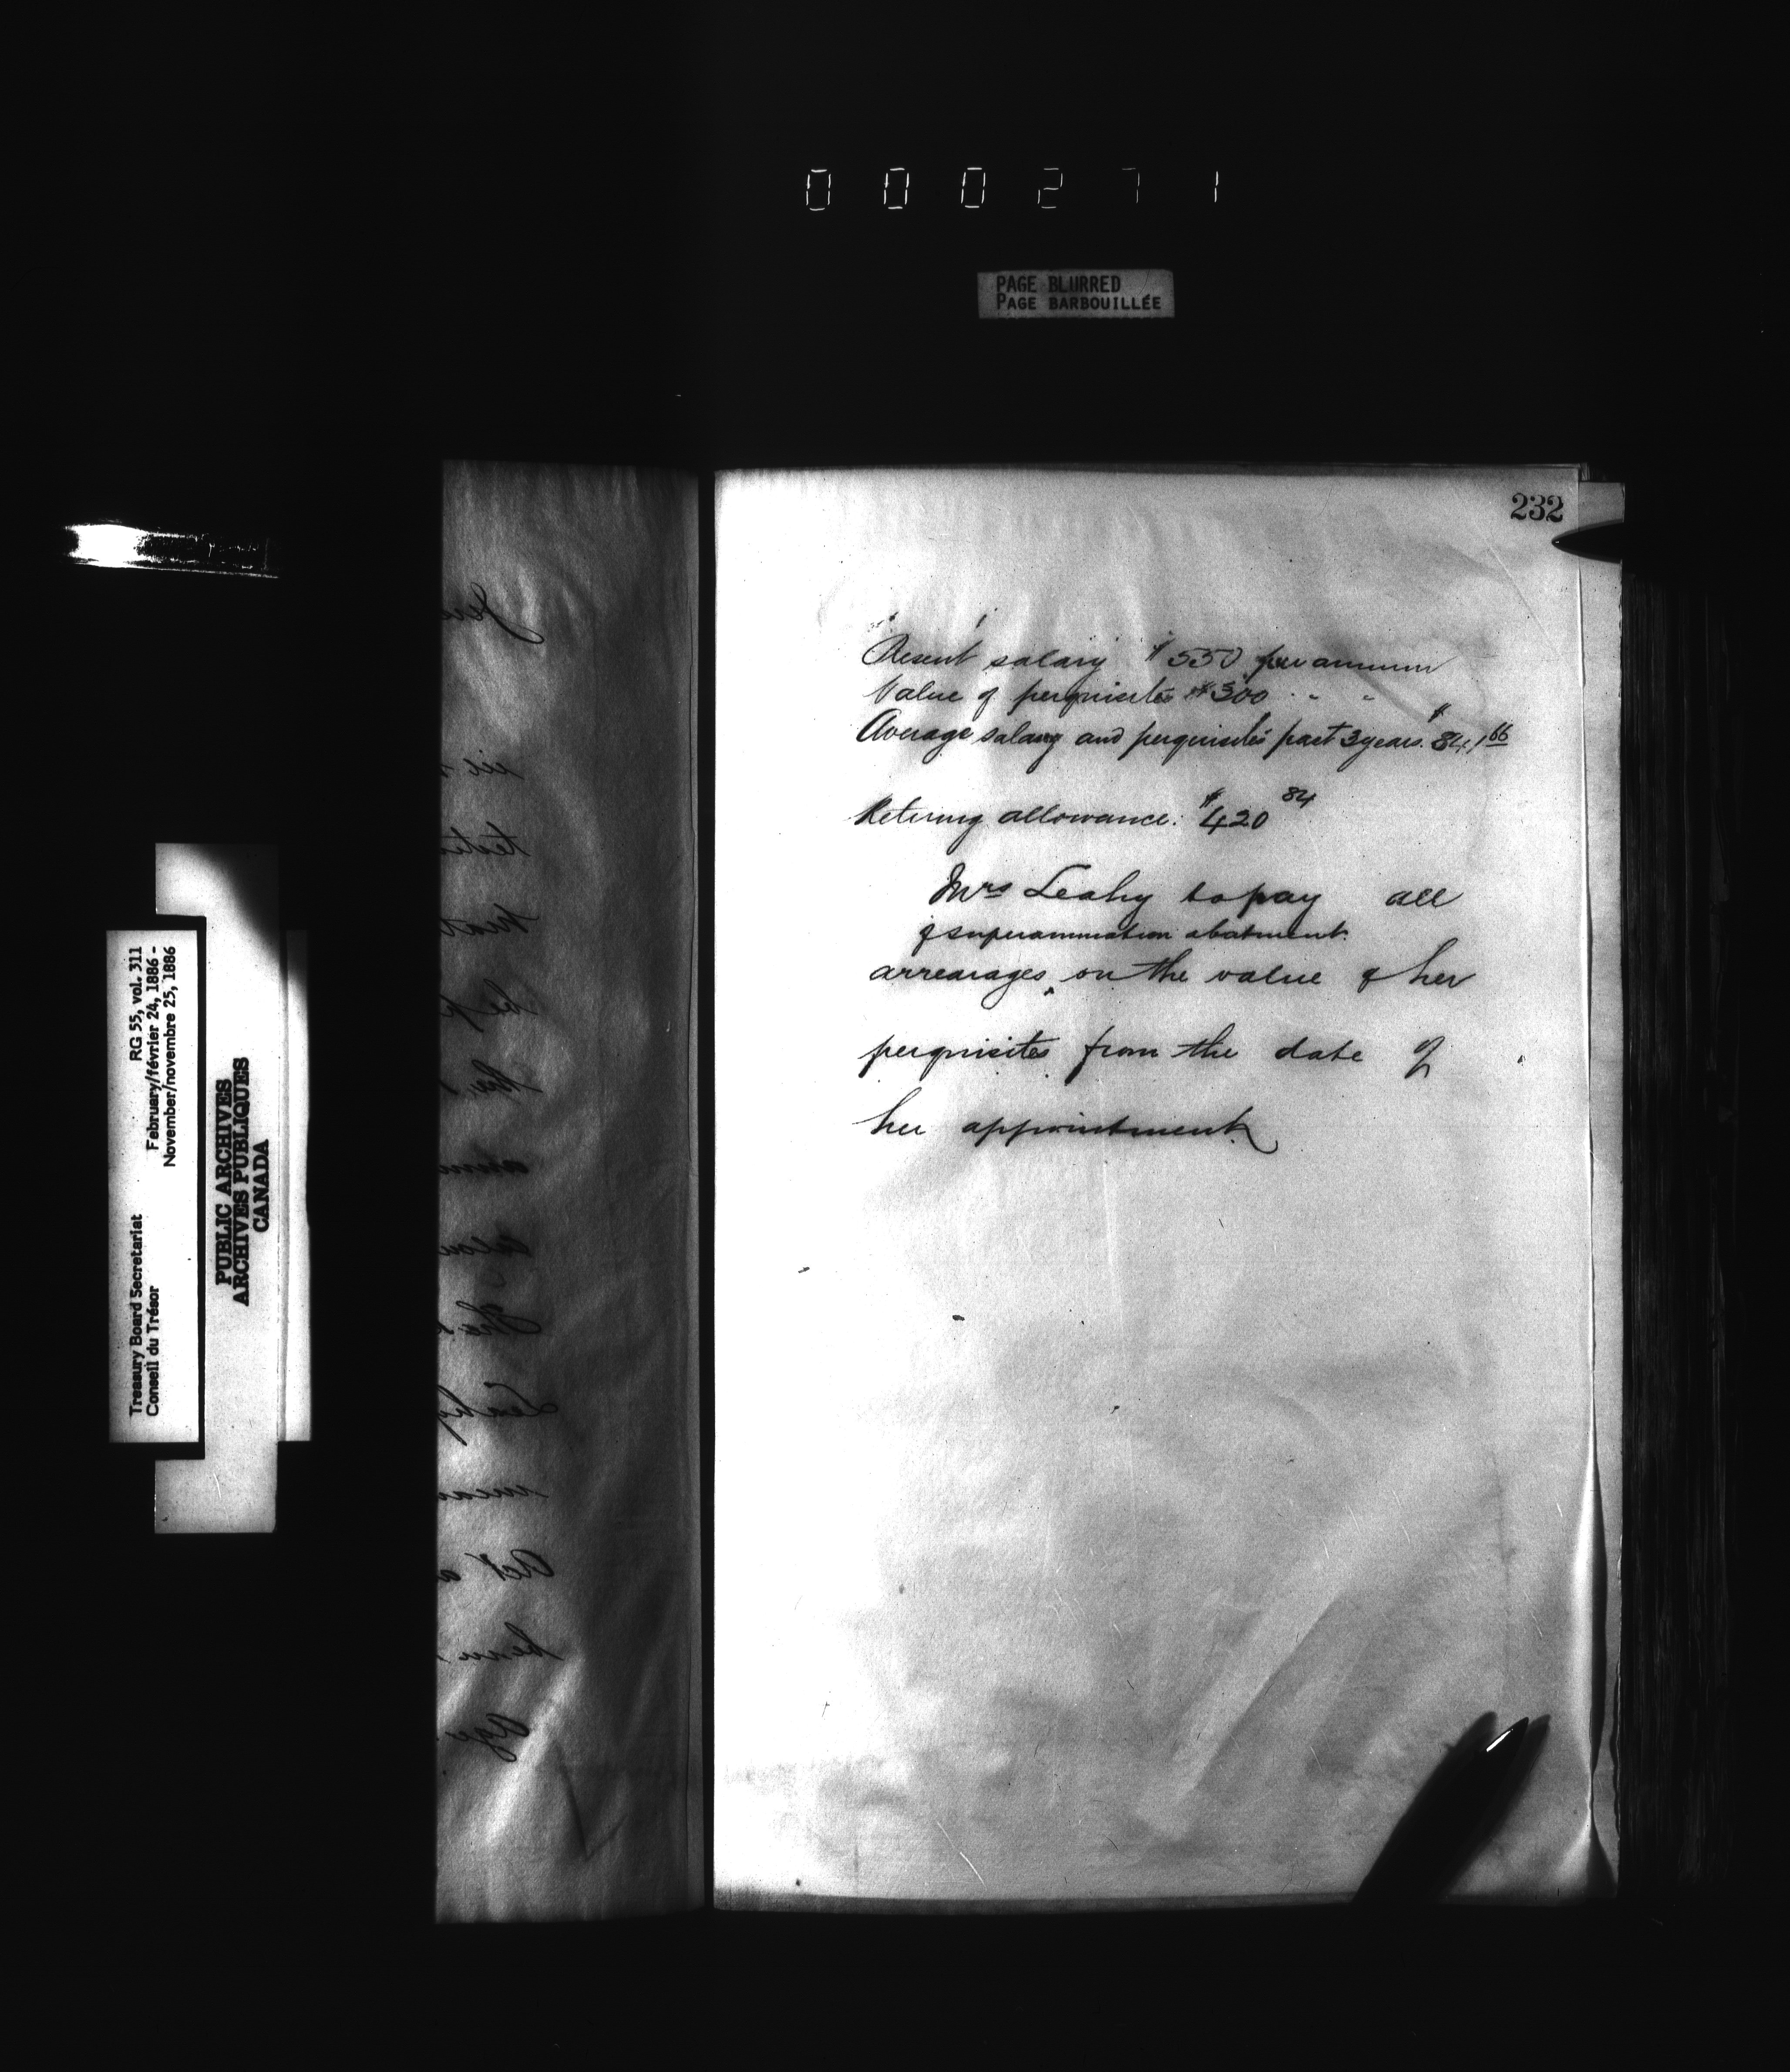 000271
PAGE BLURRED
PAGE BARBOUILLÉE
232
Present salary $550 per annum
Value of perquisites $300 " "
Average salary and perquisites past 3 years. $841 66
Retiring allowance. $420 84
Mrs Leahy to pay all
of superannuation abatement
arrearages on the value of her
perquisites from the date of
her appointment
Treasury Board Secretariat RG 55, vol. 311
Conseil du Trésor February/février 24, 1886 -
November/novembre 25, 1886
PUBLIC ARCHIVES
ARCHIVES PUBLIQUES
CANADA
Leahy
Act a
Age